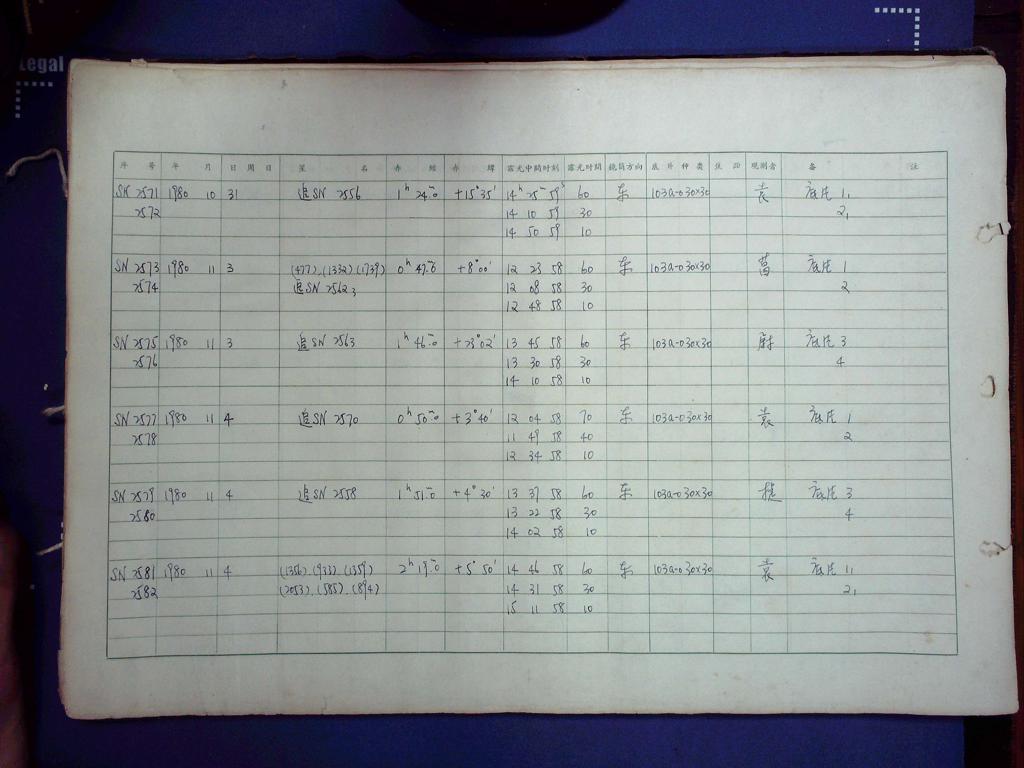 Legal
序 号 年 月 日 周 日 星 名 赤 经 赤 纬 露光中间时刻 露光时间 镜筒方向 底片种类 焦距 观测者 备 註
SN 2571 1980 10 31 追SN 2556 1h 24m.0 +15°35′ 14h 25m 59s 60 东 103a-O 30×30 袁 底片 1,
2572 14 10 59 30 2,
14 50 59 10
SN 2573 1980 11 3 (477),(1332),(1739) 0h 47m.0 +8°00′ 12 23 58 60 东 103a-O 30×30 底片 1
2574 追SN 2562, 12 08 58 30 2
12 48 58 10
SN 2575 1980 11 3 追SN 2563 1h 46m.0 +23°02′ 13 45 58 60 东 103a-O 30×30 底片 3
2576 13 30 58 30 4
14 10 58 10
SN 2577 1980 11 4 追SN 2570 0h 50m.0 +3°40′ 12 04 58 70 东 103a-O 30×30 袁 底片 1
2578 11 49 58 40 2
12 34 58 10
SN 2579 1980 11 4 追SN 2558 1h 51m.0 +4°30′ 13 37 58 60 东 103a-O 30×30 底片 3
2580 13 22 58 30 4
14 02 58 10
SN 2581 1980 11 4 (1356),(933),(1359) 2h 19m.0 +5°50′ 14 46 58 60 东 103a-O 30×30 袁 底片 1,
2582 (2053),(585),(894) 14 31 58 30 2,
15 11 58 10